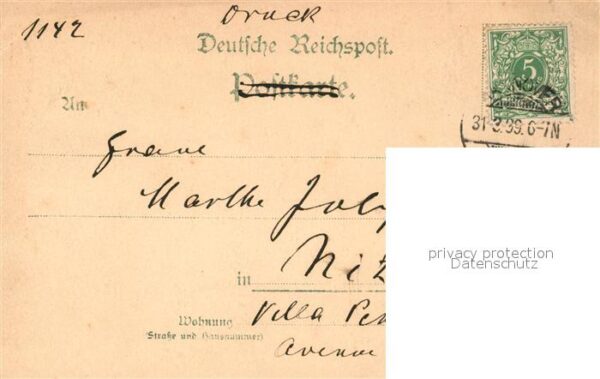 Druck
1142
Deutsche Reichspost.
Postkarte.
5
NOVER
31.3.99.6-7N
An
Frau
Marthe
in
Wohnung
(Straße und Hausnummer)
Villa
Avenue
privacy protection
Datenschutz